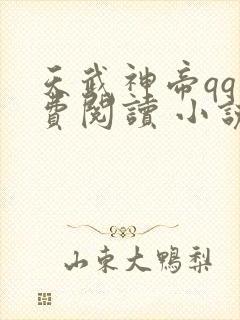 天武神帝qq
費閱讀 小說
山東大鴨梨